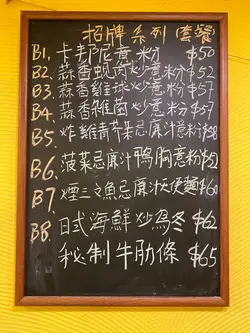 招牌系列 套餐
B1. 卡邦尼意粉 $50
B2. 蒜香蜆肉炒意粉 $52
B3. 蒜香雞球炒意粉 $57
B4. 蒜香雜菌炒意粉 $57
B5. 炸雞青芥忌廉汁意粉 $58
B6. 菠菜忌廉汁鴨胸意粉 $52
B7. 煙三文魚忌廉汁天使麵 $60
B8. 日式海鮮炒烏冬 $62
秘制牛肋條 $65